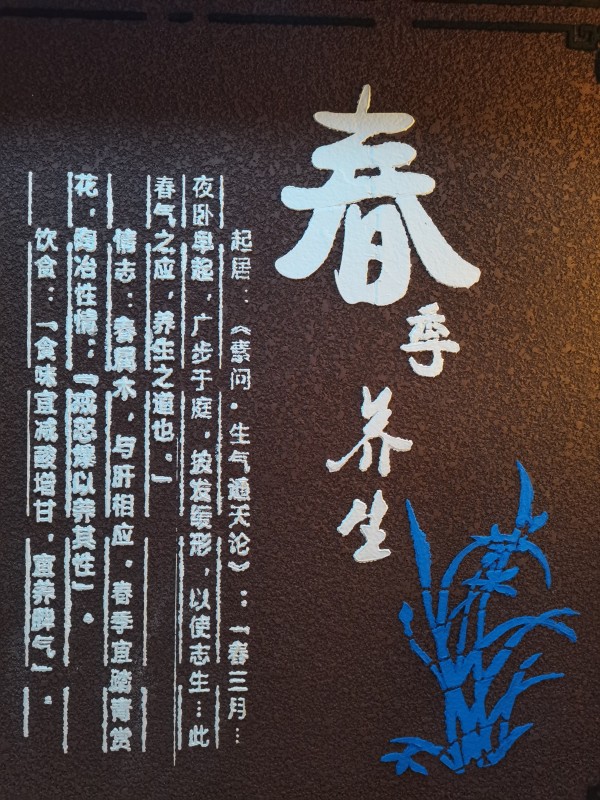 春季养生
起居：《素问·生气通天论》：「春三月…
夜卧早起，广步于庭，披发缓形，以使志生…此
春气之应，养生之道也。」
情志：春属木，与肝相应。春季宜踏青赏
花，陶冶性情；「戒怒燥以养其性」。
饮食：「食味宜减酸增甘，宜养脾气」。